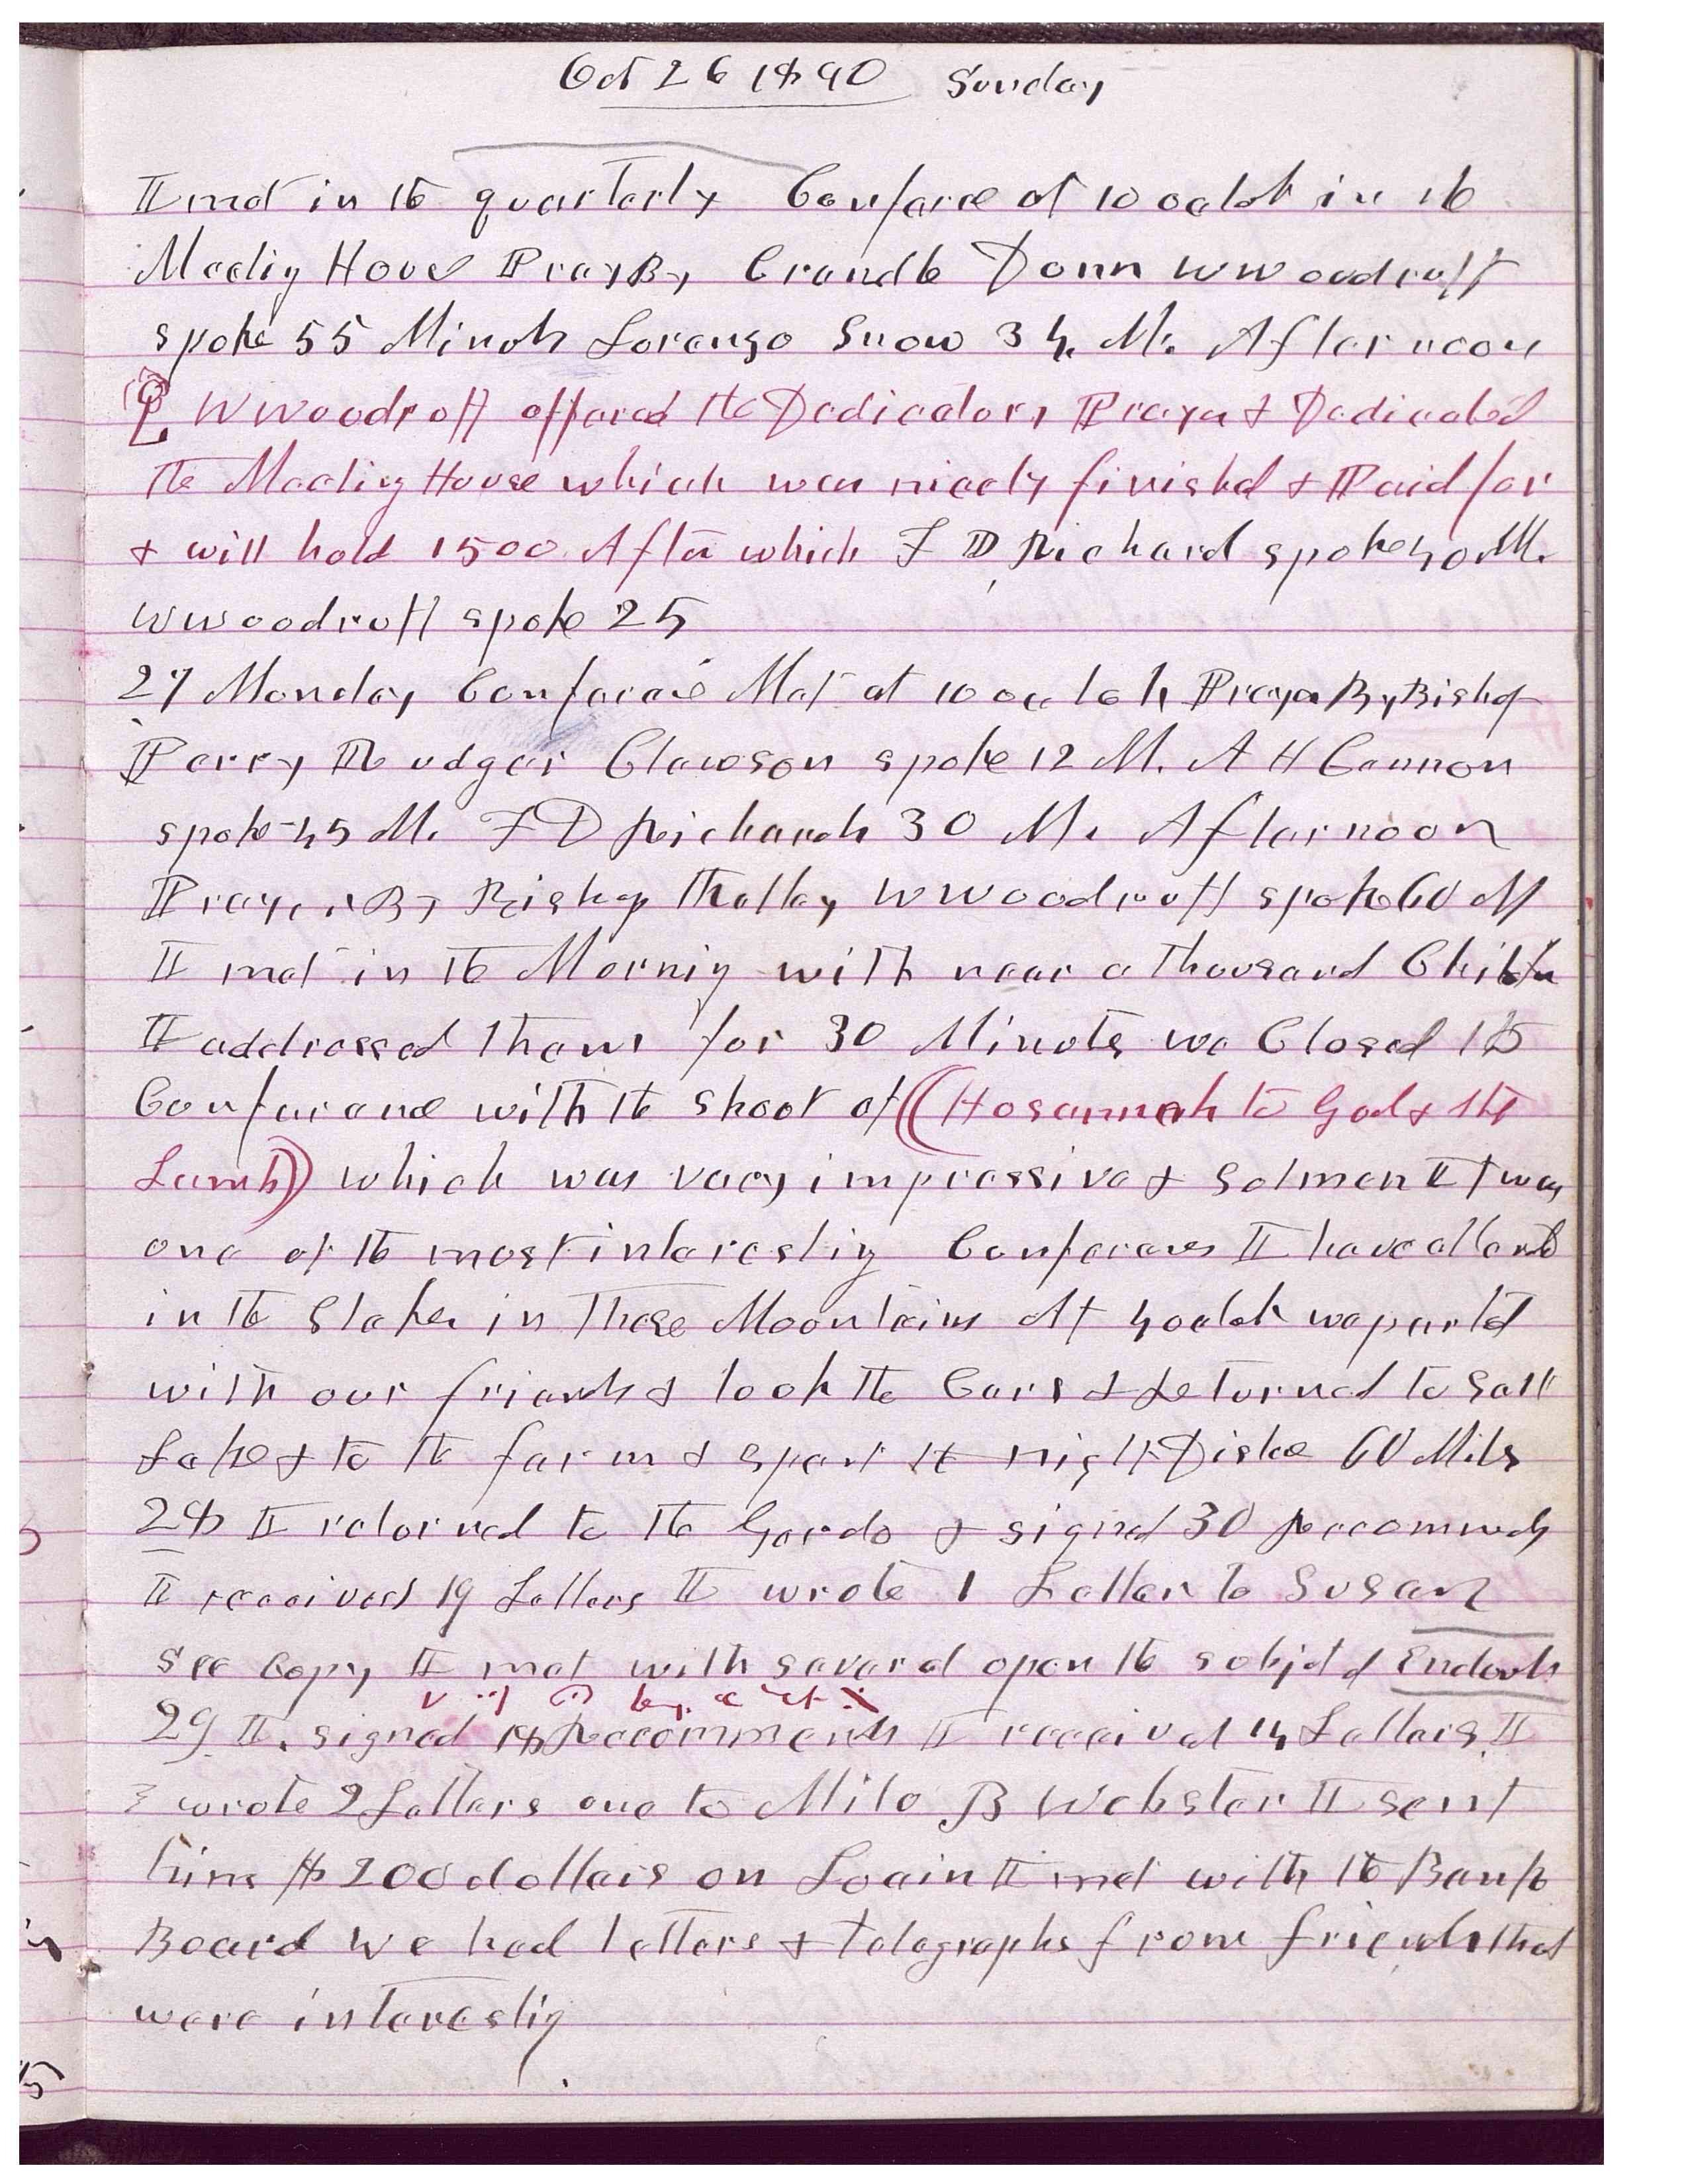 Oct 26 1890 Sunday
I met in the quarterly Conferce at 10 oclok in the
Meetig House Prayr By Crandle Donn W Woodruff
spoke 55 Minuts Lorenzo Snow 34. M. Afternoon
W Woodruff offered the Dedicatory Prayer & Dedicated
the Meeting House which was nicely finished & Paid for
& will hold 1500 After which F D Richard spoke 40 M.
W Woodruff spoke 25
27 Monday Conferance Met at 10 oclok Prayer By Bishop
Perry Rudger Clawson spoke 12 M. A H Cannon
spoke 45 M. F D Richards 30 M. Afternoon
Prayer By Bishop W Woodruff spoke 60 M
I met in the Mornig with near a thousand Childn
I addressed them for 30 Minutes we Closed the
Conferance with the shout of (Hosannah to God & the
Lamb) which was very impressive & Solmen It was
one of the most interestig Conferances I have attend
in the Stakes in these Mountains At 4 oclok we parted
with our friends & took the Cars & returned to Salt
Lake & to the farm & spent the night Distce 60 Miles
28 I returned to the Gardo & signed 30 Recommends
I received 19 Letters I wrote 1 Letter to Susan
see Copy I met with several upon the subjet of Endowts
29 I signed 18 Recommends I received 14 Letters I
wrote 2 Letters one to Milo B Webster I sent
him $200 dollars on Loain I met with the Bank
Board We had letters & telographs from friends that
were interestig